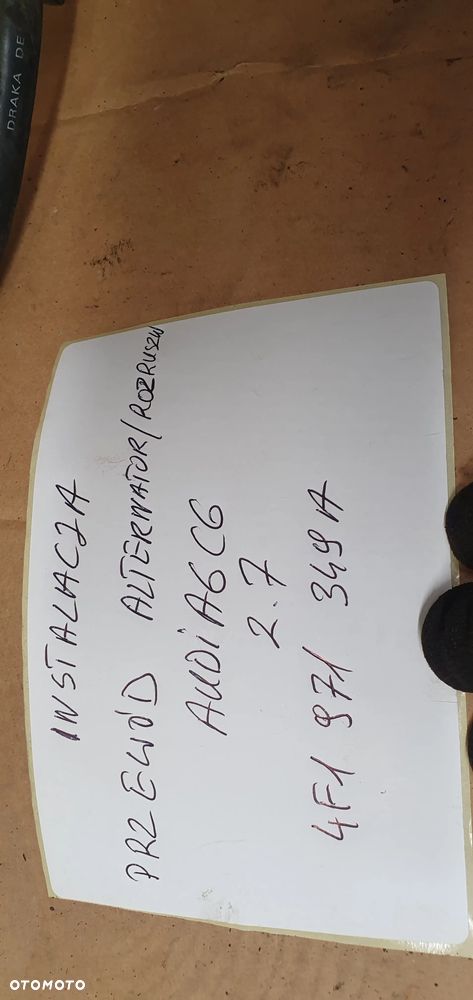 DRAKA DE
INSTALACJA
PRZEWÓD ALTERNATOR/ROZRUSZN
AUDi A6 C6
2.7
4F1 971 349A
OTOMOTO